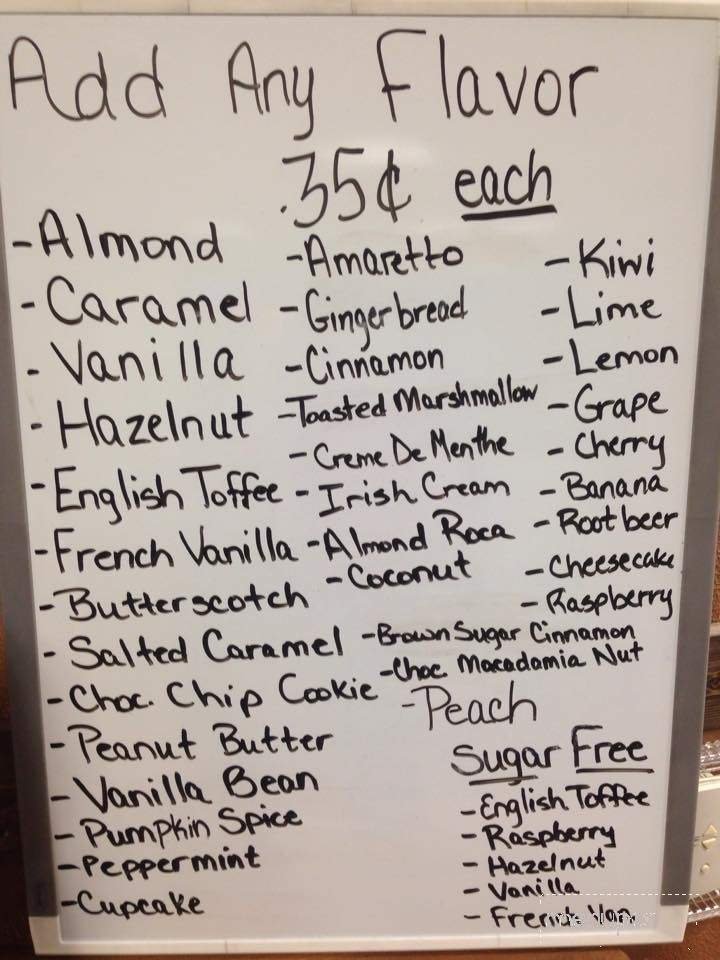 Add Any Flavor
.35¢ each
-Almond
-Caramel
-Vanilla
-Hazelnut
-English Toffee
-French Vanilla
-Butterscotch
-Salted Caramel
-Choc. Chip Cookie
-Peanut Butter
-Vanilla Bean
-Pumpkin Spice
-Peppermint
-Cupcake
-Amaretto
-Gingerbread
-Cinnamon
-Toasted Marshmallow
-Creme De Menthe
-Irish Cream
-Almond Roca
-Coconut
-Brown Sugar Cinnamon
-Choc. Macadamia Nut
-Peach
-Kiwi
-Lime
-Lemon
-Grape
-Cherry
-Banana
-Rootbeer
-Cheesecake
-Raspberry
Sugar Free
-English Toffee
-Raspberry
-Hazelnut
-Vanilla
-French Van